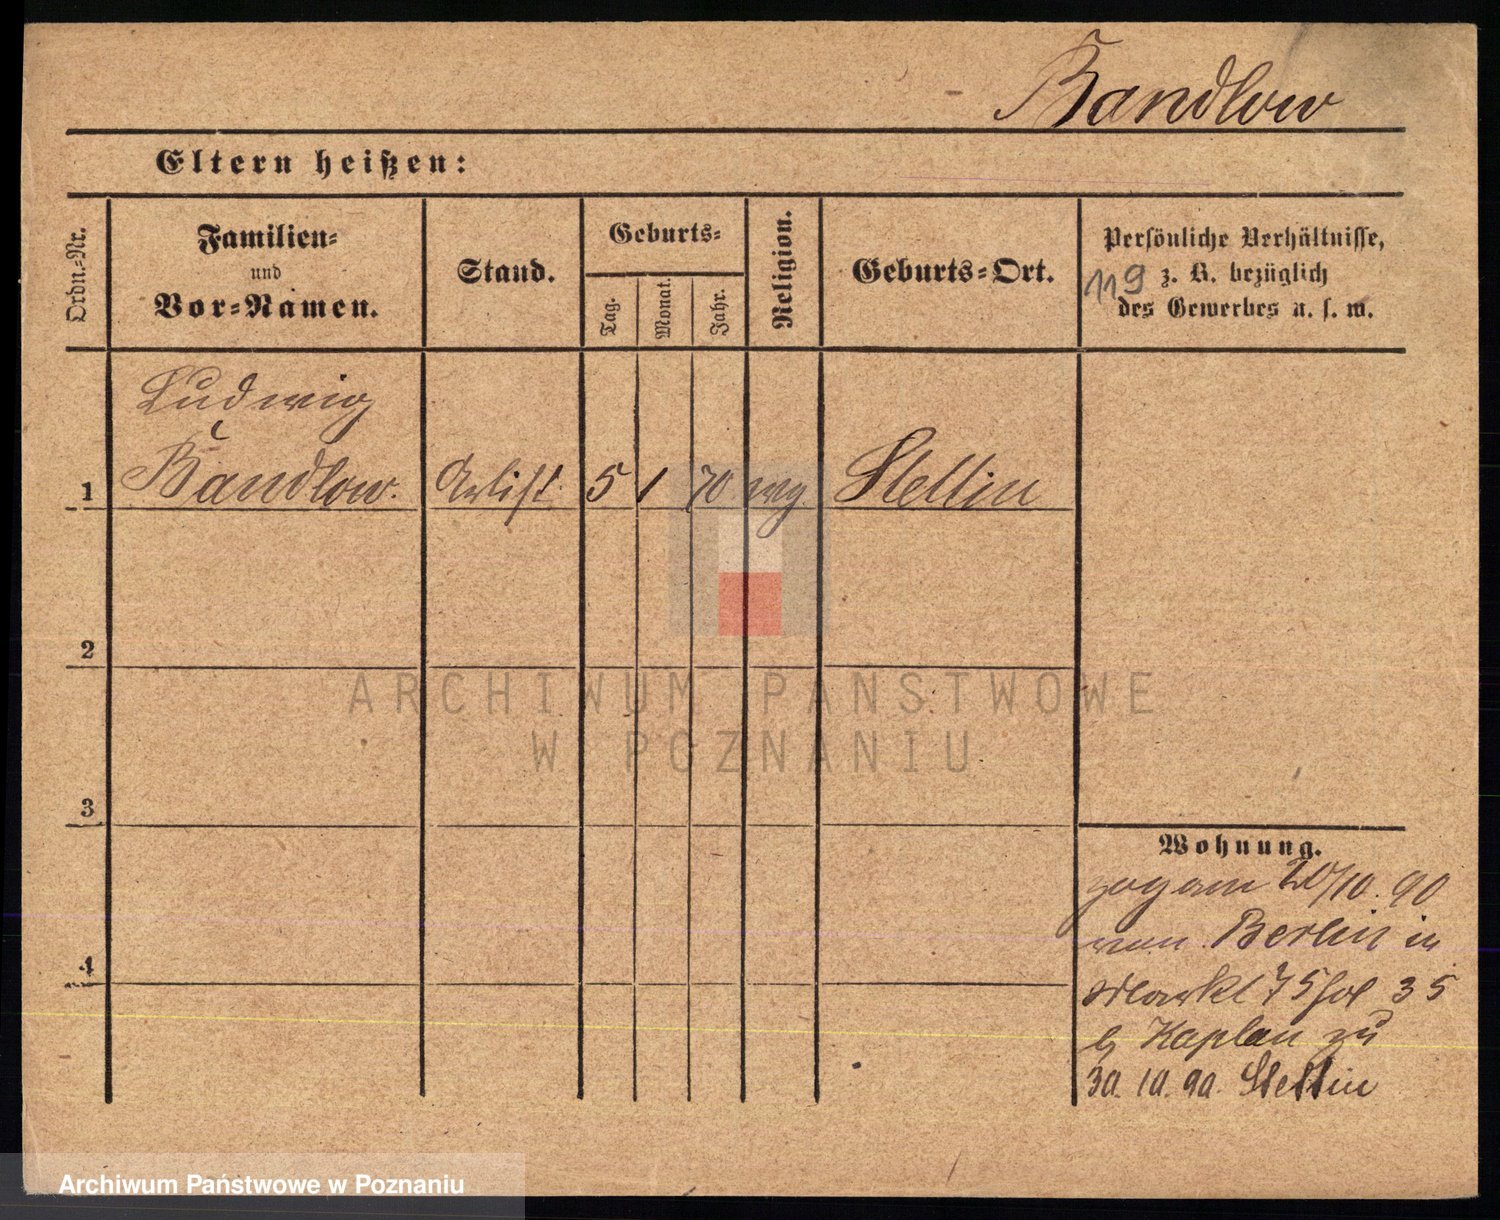 Bandlow
Eltern heißen:
Ordn.-Nr.
Familien-
und
Vor-Namen.
Stand.
Geburts-
Tag.
Monat.
Jahr.
Religion.
Geburts-Ort.
Persönliche Verhältnisse,
z. B. bezüglich
des Gewerbes u. s. w.
119
Ludwig
1 Bandlow. 5 1 70 Stettin
2
3
4
Wohnung.
zog am 20/10. 90
von Berlin in
Markt 75 35
b Kaplan zu
30. 10. 90. Stettin
ARCHIWUM PAŃSTWOWE
W POZNANIU
Archiwum Państwowe w Poznaniu